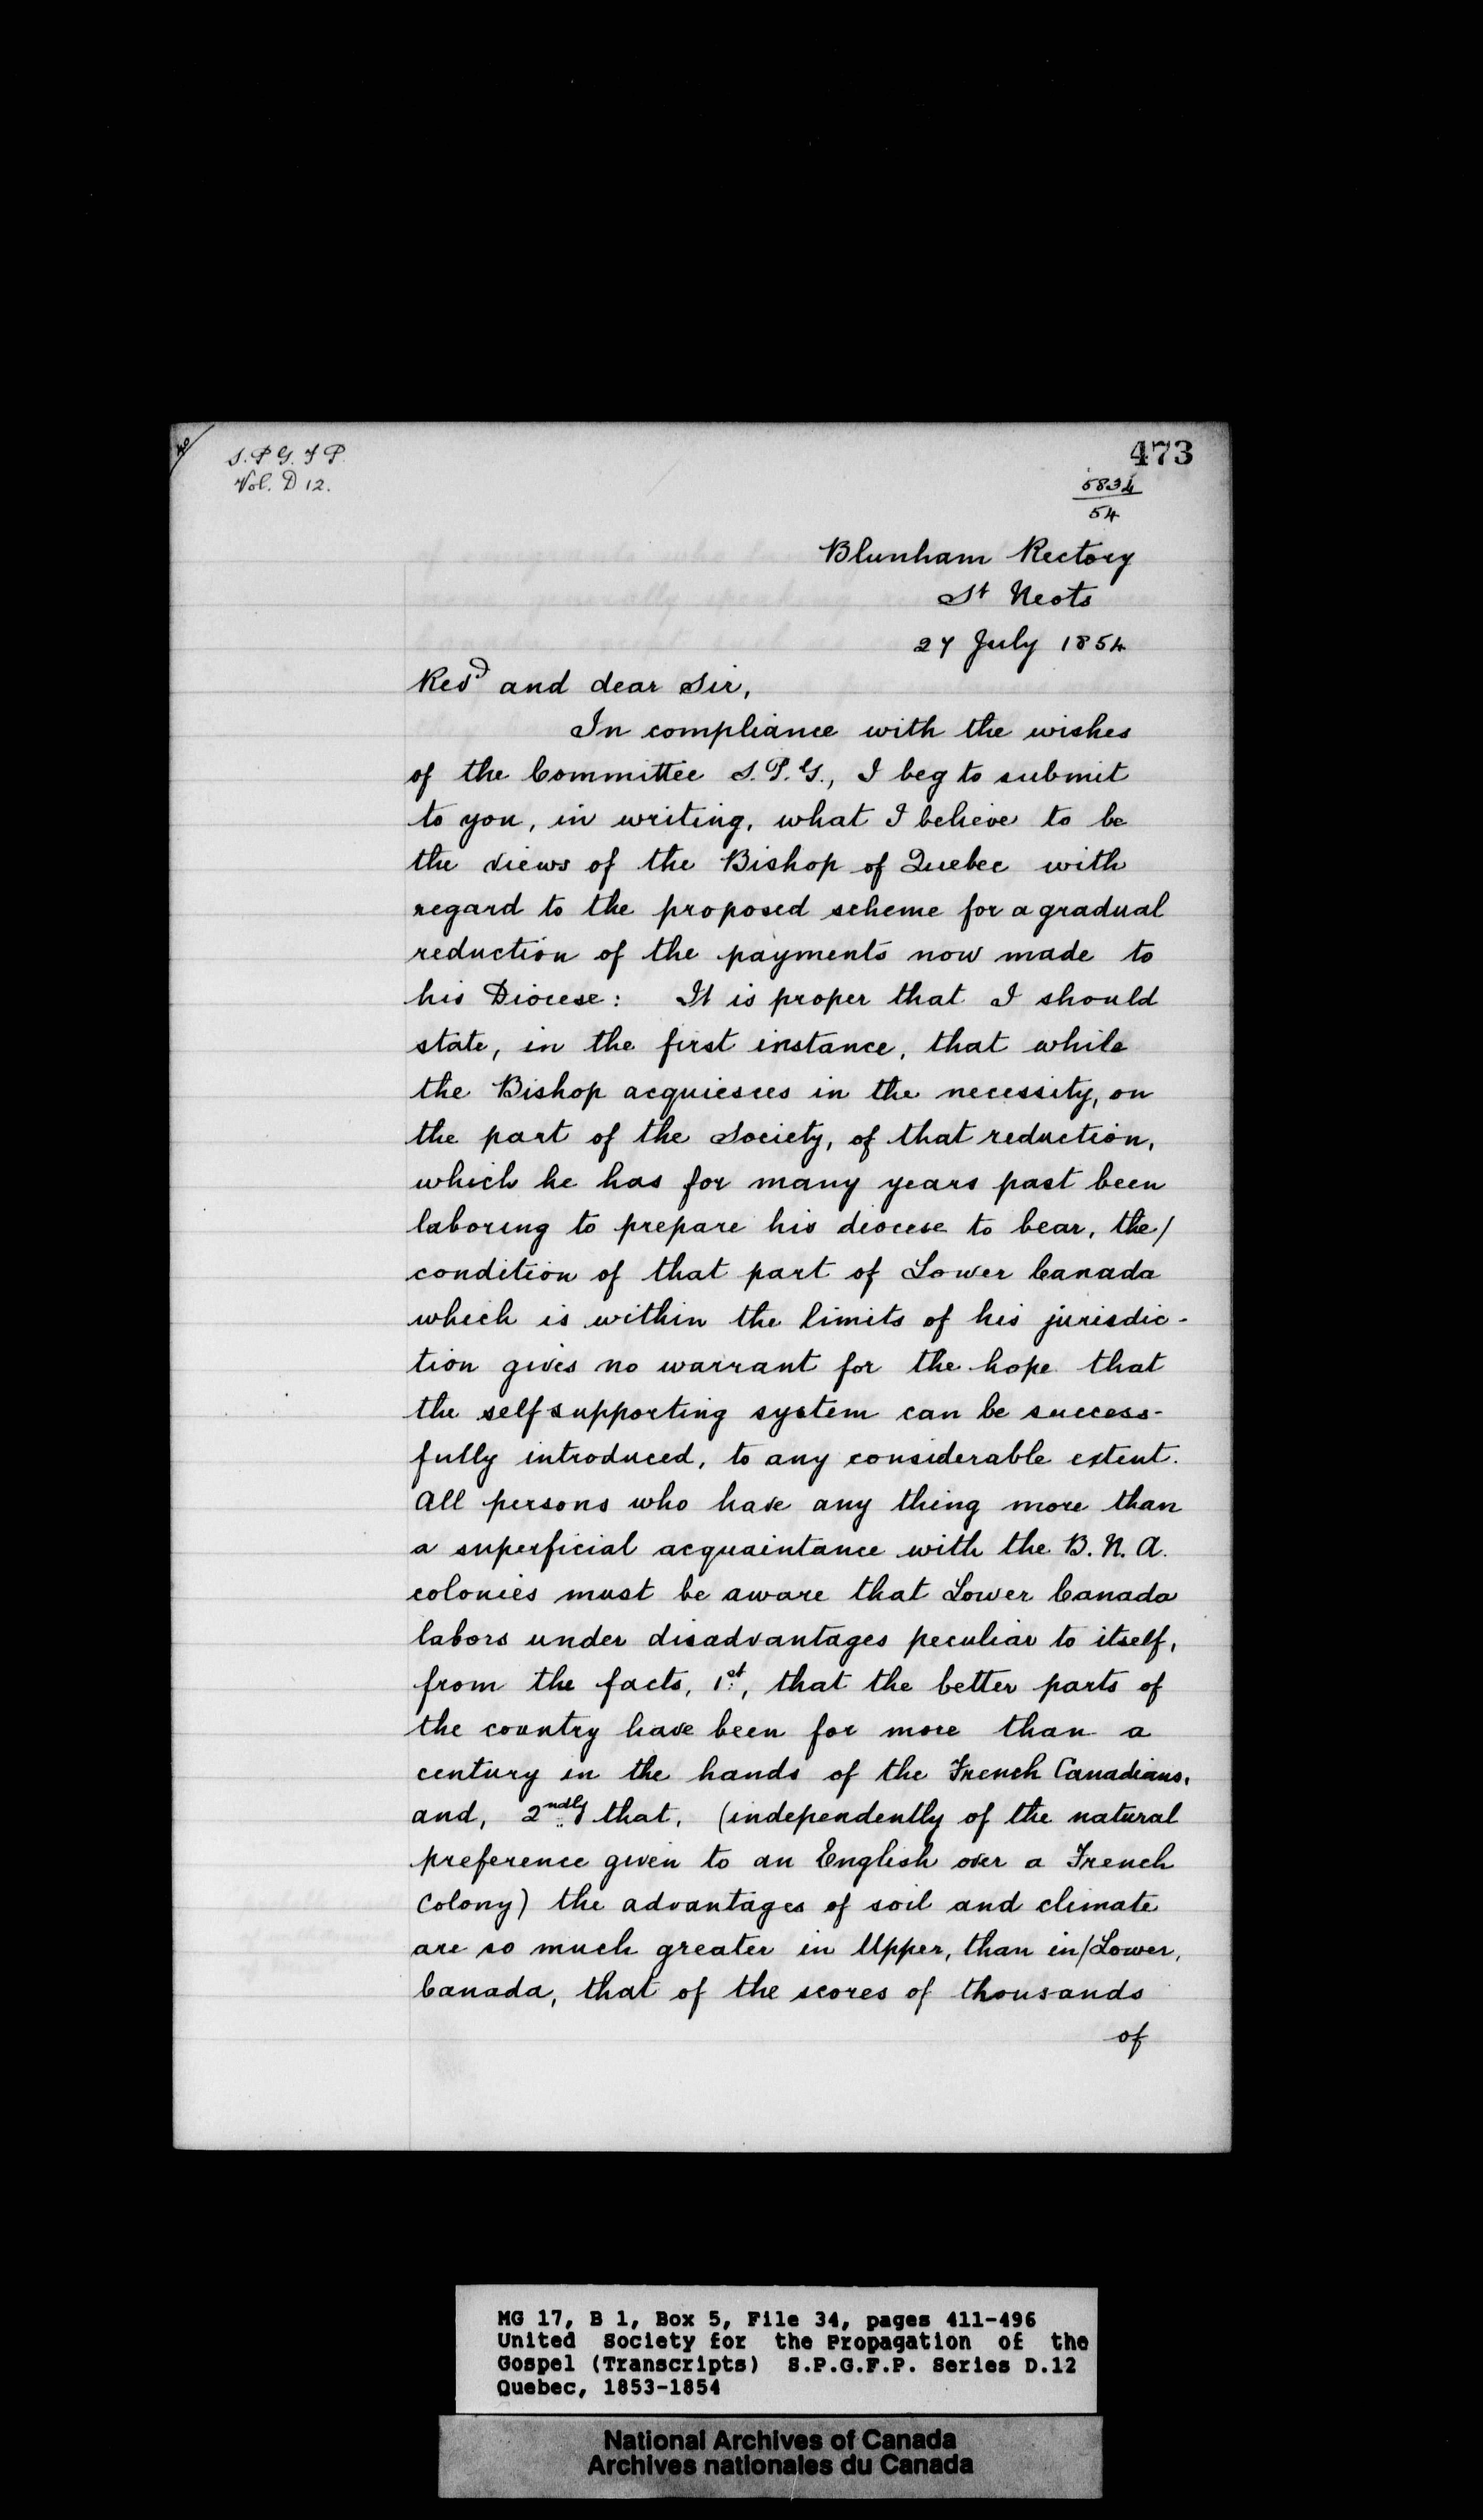 S.P.G.F.P.
Vol. D 12.
473
5834
54
Blunham Rectory
St Neots
27 July 1854
Revd and dear Sir,
In compliance with the wishes
of the Committee S.P.G., I beg to submit
to you, in writing, what I believe to be
the views of the Bishop of Quebec with
regard to the proposed scheme for a gradual
reduction of the payments now made to
his Diocese: It is proper that I should
state, in the first instance, that while
the Bishop acquiesces in the necessity, on
the part of the Society, of that reduction,
which he has for many years past been
laboring to prepare his diocese to bear, the/
condition of that part of Lower Canada
which is within the limits of his jurisdic-
tion gives no warrant for the hope that
the self supporting system can be success-
fully introduced, to any considerable extent.
All persons who have any thing more than
a superficial acquaintance with the B. N. A.
colonies must be aware that Lower Canada
labors under disadvantages peculiar to itself,
from the facts, 1st, that the better parts of
the country have been for more than a
century in the hands of the French Canadians,
and, 2ndly that, (independently of the natural
preference given to an English over a French
Colony) the advantages of soil and climate
are so much greater in Upper, than in/Lower,
Canada, that of the scores of thousands
of
MG 17, B 1, Box 5, File 34, pages 411-496
United Society for the Propagation of the
Gospel (Transcripts) S.P.G.F.P. Series D.12
Quebec, 1853-1854
National Archives of Canada
Archives nationales du Canada